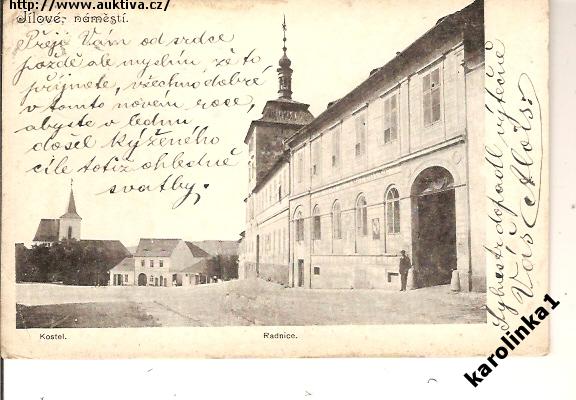 http://www.auktiva.cz/
Jílové, náměstí.
Přeji Vám od srdce
pozdě ale myslím že to
příjmete, všechno dobré
v tomto novém roce,
abyste v lednu
došel kýženého
cíle totiž ohledně
svatby.
Sylvestr dopadl výtečně
Váš Alois.
Kostel.
Radnice.
karolinka1